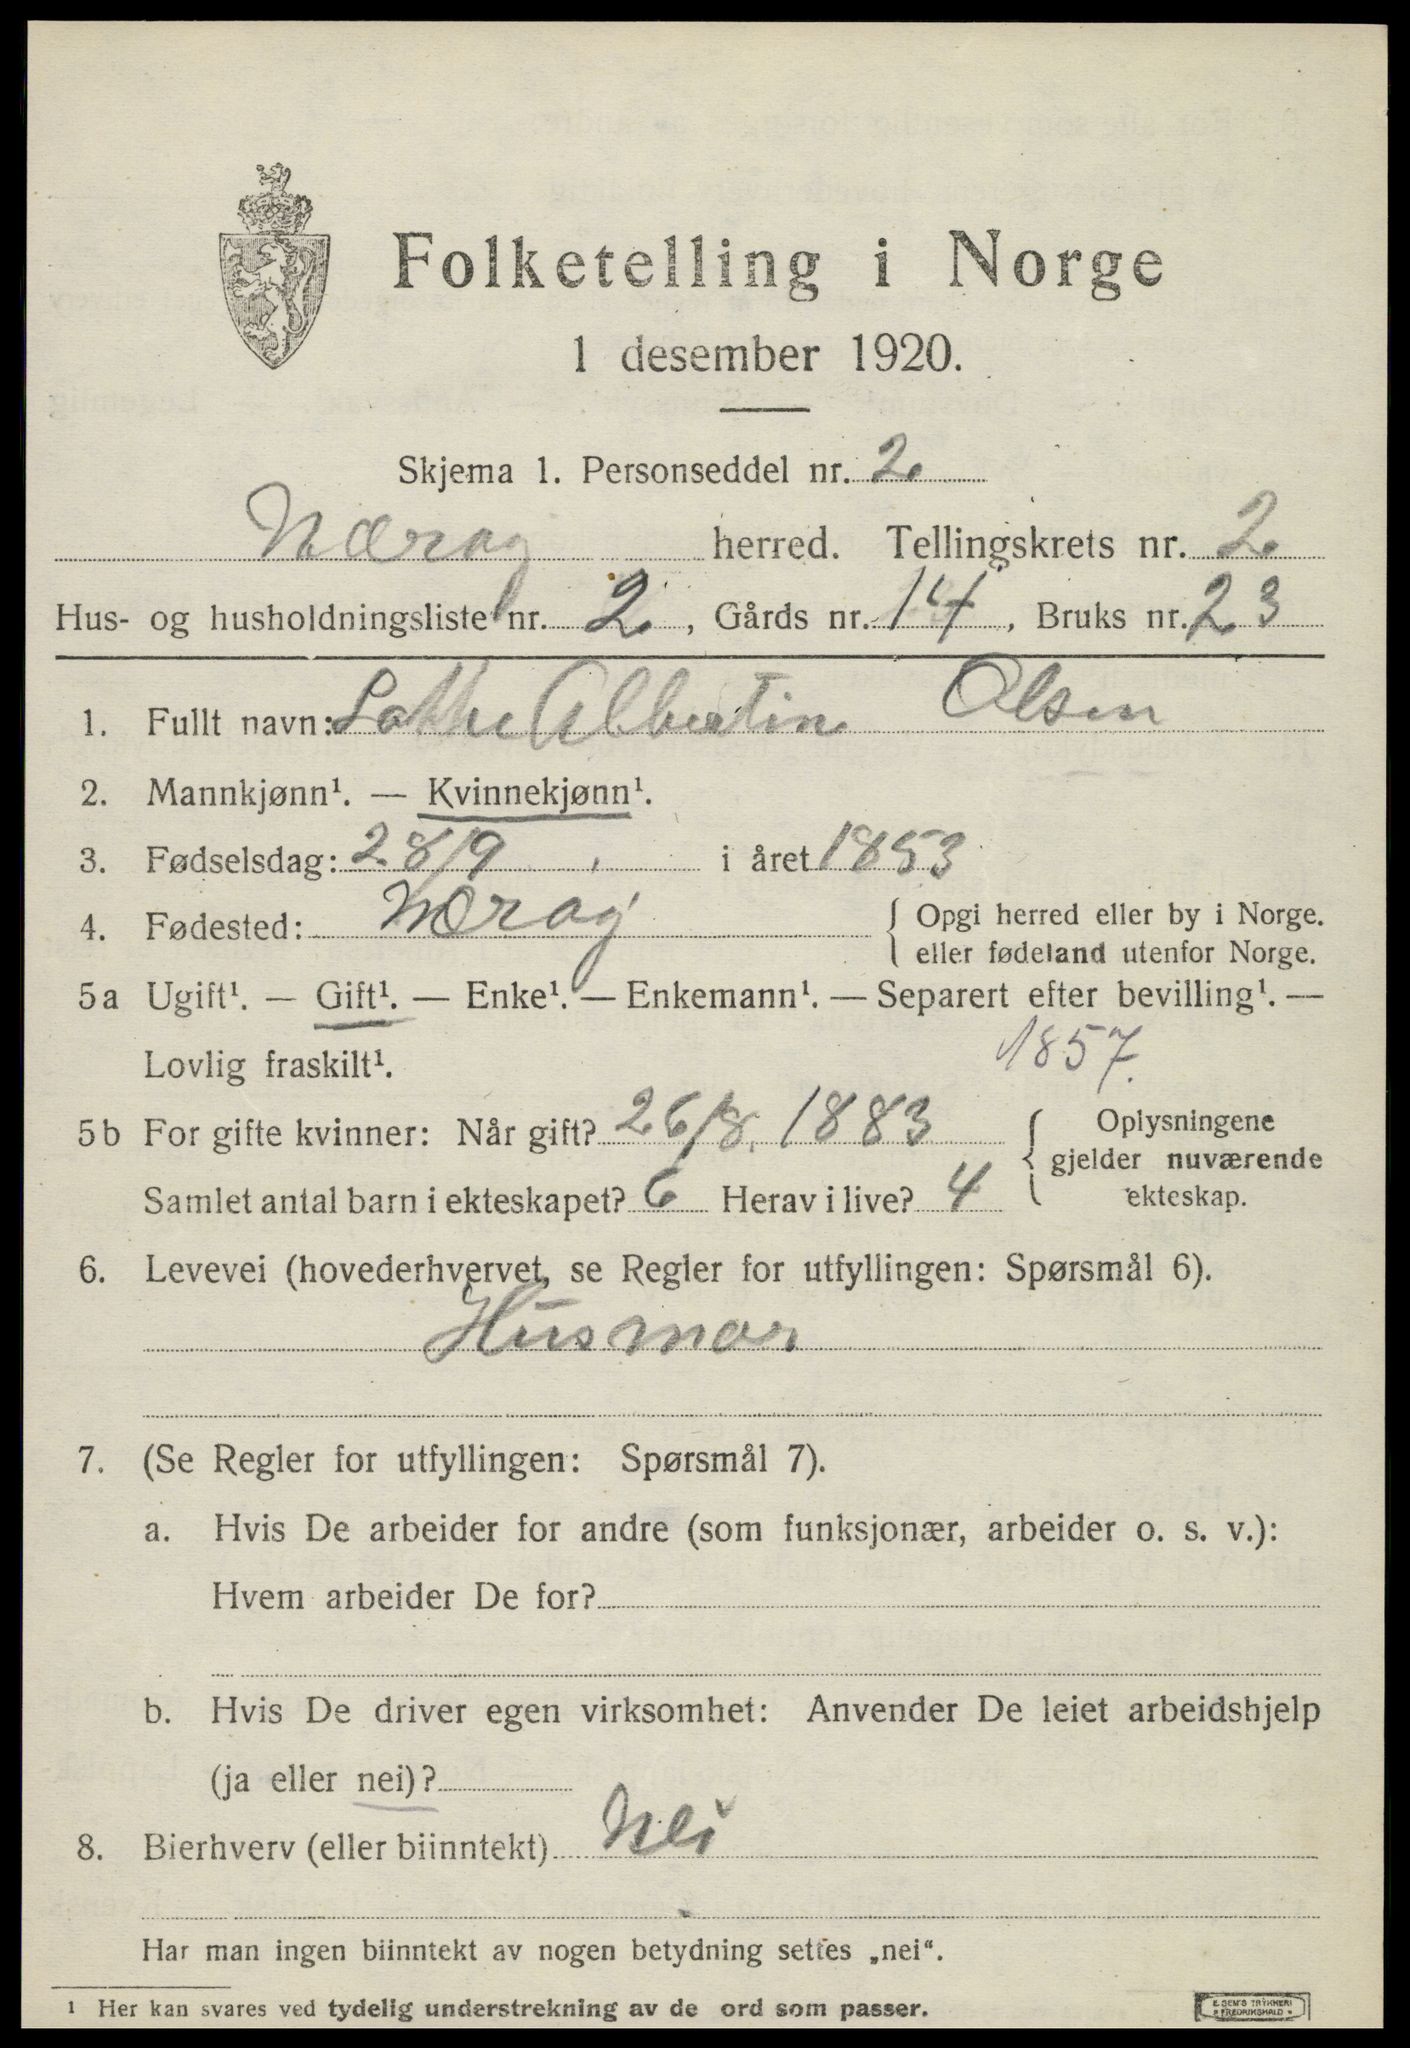 Folketelling i Norge
1 desember 1920.
Skjema 1. Personseddel nr. 2
Nærøy herred. Tellingskrets nr. 2
Hus- og husholdningsliste nr. 2, Gårds nr. 14, Bruks nr. 23
1. Fullt navn: Albertine Olsen
2. Mannkjønn¹. — Kvinnekjønn¹.
3. Fødselsdag: 28/9 i året 1853
4. Fødested: Nærøy { Opgi herred eller by i Norge.
eller fødeland utenfor Norge.
5a Ugift¹. — Gift¹. — Enke¹. — Enkemann¹. — Separert efter bevilling¹. —
Lovlig fraskilt¹. 1857.
5b For gifte kvinner: Når gift? 26/8. 1883 { Oplysningene
gjelder nuværende
Samlet antal barn i ekteskapet? 6 Herav i live? 4 ekteskap.
6. Levevei (hovederhvervet, se Regler for utfyllingen: Spørsmål 6).
Husmor
7. (Se Regler for utfyllingen: Spørsmål 7).
a. Hvis De arbeider for andre (som funksjonær, arbeider o. s. v.):
Hvem arbeider De for?
b. Hvis De driver egen virksomhet: Anvender De leiet arbeidshjelp
(ja eller nei)?
8. Bierhverv (eller biinntekt) Nei
Har man ingen biinntekt av nogen betydning settes „nei“.
¹ Her kan svares ved tydelig understrekning av de ord som passer.
E. SEM'S TRYKKERI
FREDRIKSHALD